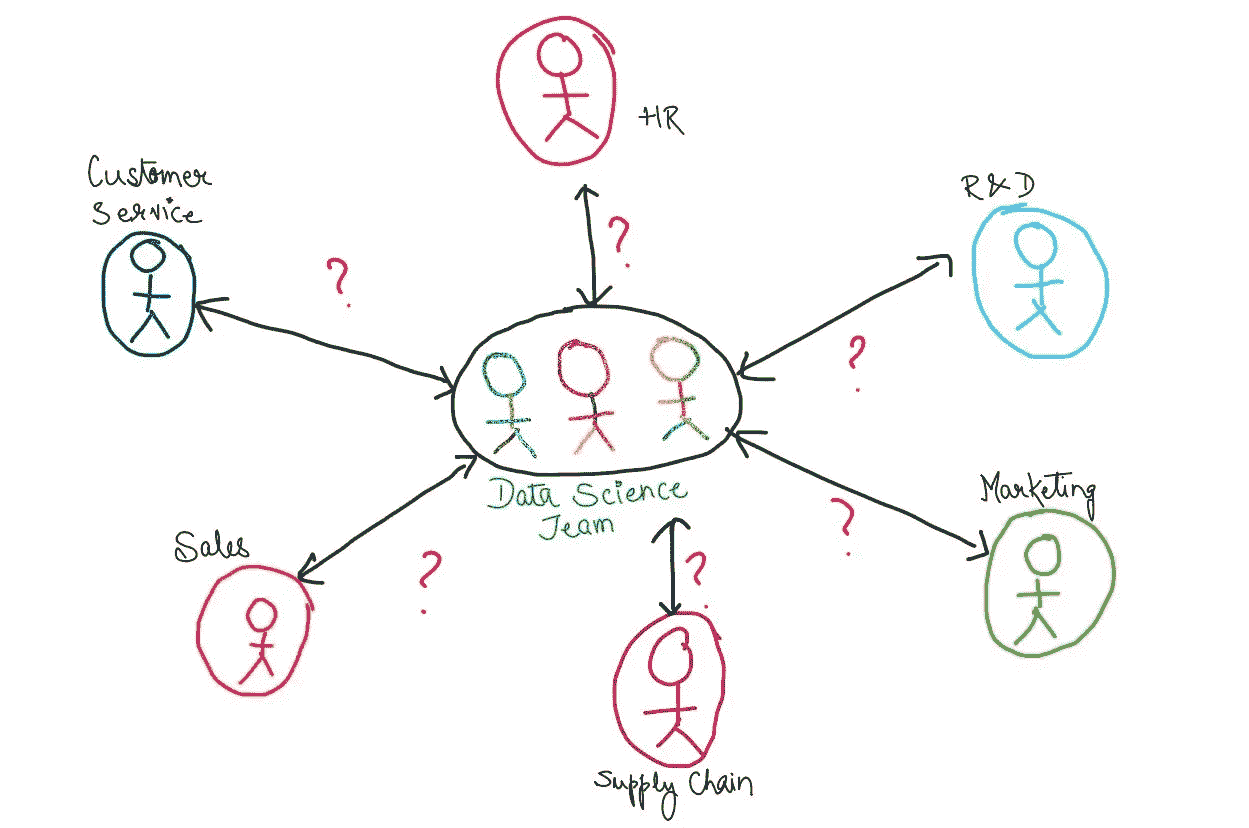 HR
Customer
Service
R&D
?
?
?
Data Science
Team
Marketing
Sales
?
?
?
Supply Chain